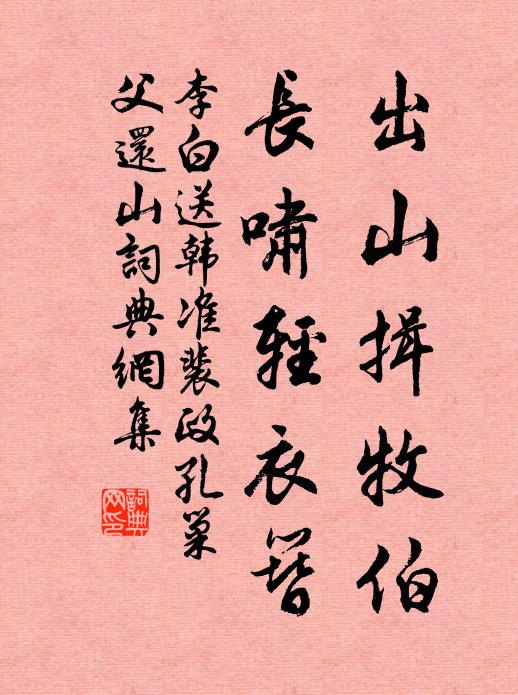 出山揖牧伯
長嘯輕衣簪
李白送韩准裴政孔巢
父還山詞典網集
詞典網印